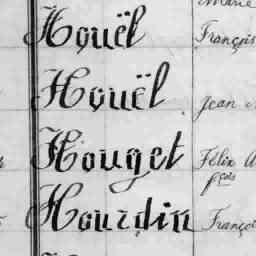 Marie
Houël François
Houël Jean
Houget Félix A
fçois
Hourdin Franço